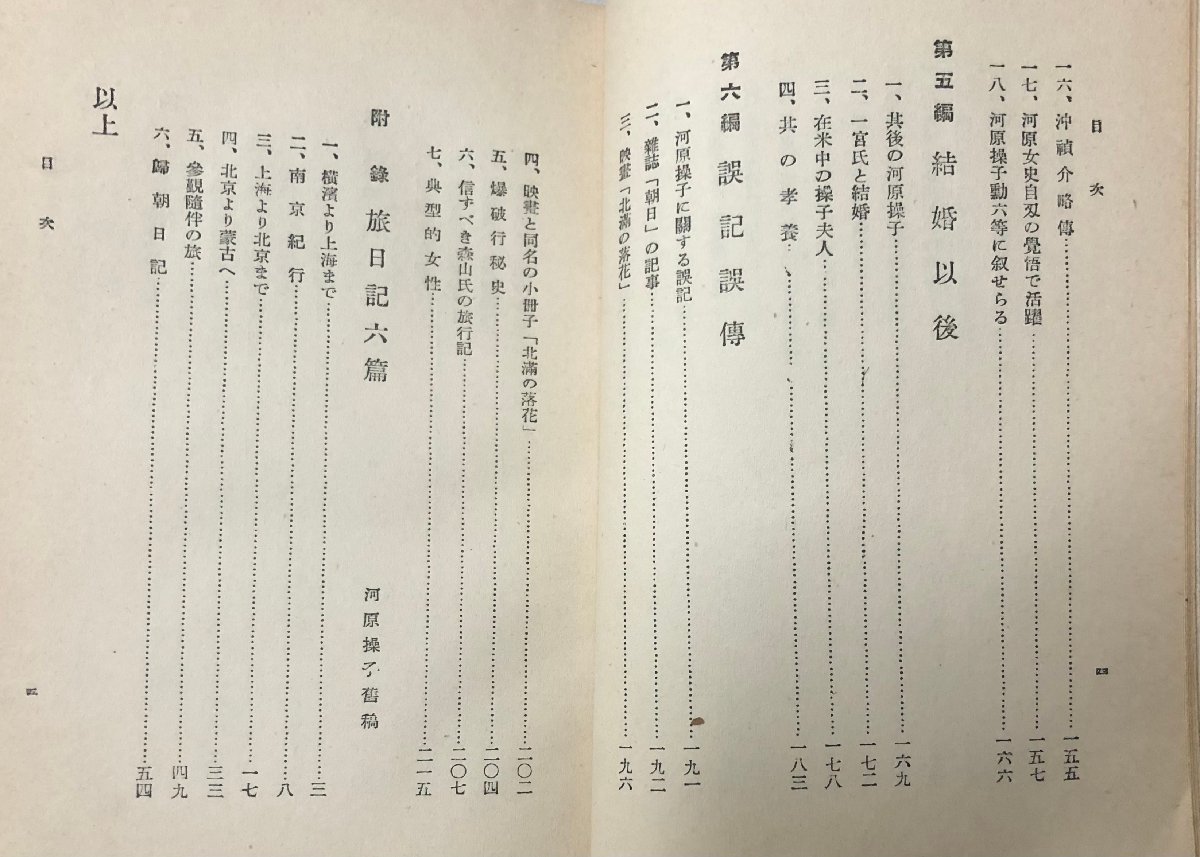 目次
四
一六、沖禎介略傳……一五五
一七、河原女史自刄の覺悟で活躍……一五七
一八、河原操子勳六等に叙せらる……一六六
第五編 結婚以後
一、其後の河原操子……一六九
二、一宮氏と結婚……一七二
三、在米中の操子夫人……一七八
四、其の孝養……一八三
第六編 誤記誤傳
一、河原操子に關する誤記……一九一
二、雜誌「朝日」の記事……一九二
三、映畫「北滿の落花」……一九六
四、映畫と同名の小冊子「北滿の落花」……二〇二
五、爆破行秘史……二〇四
六、信すべき森山氏の旅行記……二〇七
七、典型的女性……二一五
附錄 旅日記六篇 河原操子舊稿
一、橫濱より上海まで……三
二、南京紀行……八
三、上海より北京まで……一七
四、北京より蒙古へ……三三
五、參觀隨伴の旅……四九
六、歸朝日記……五四
以上
目次